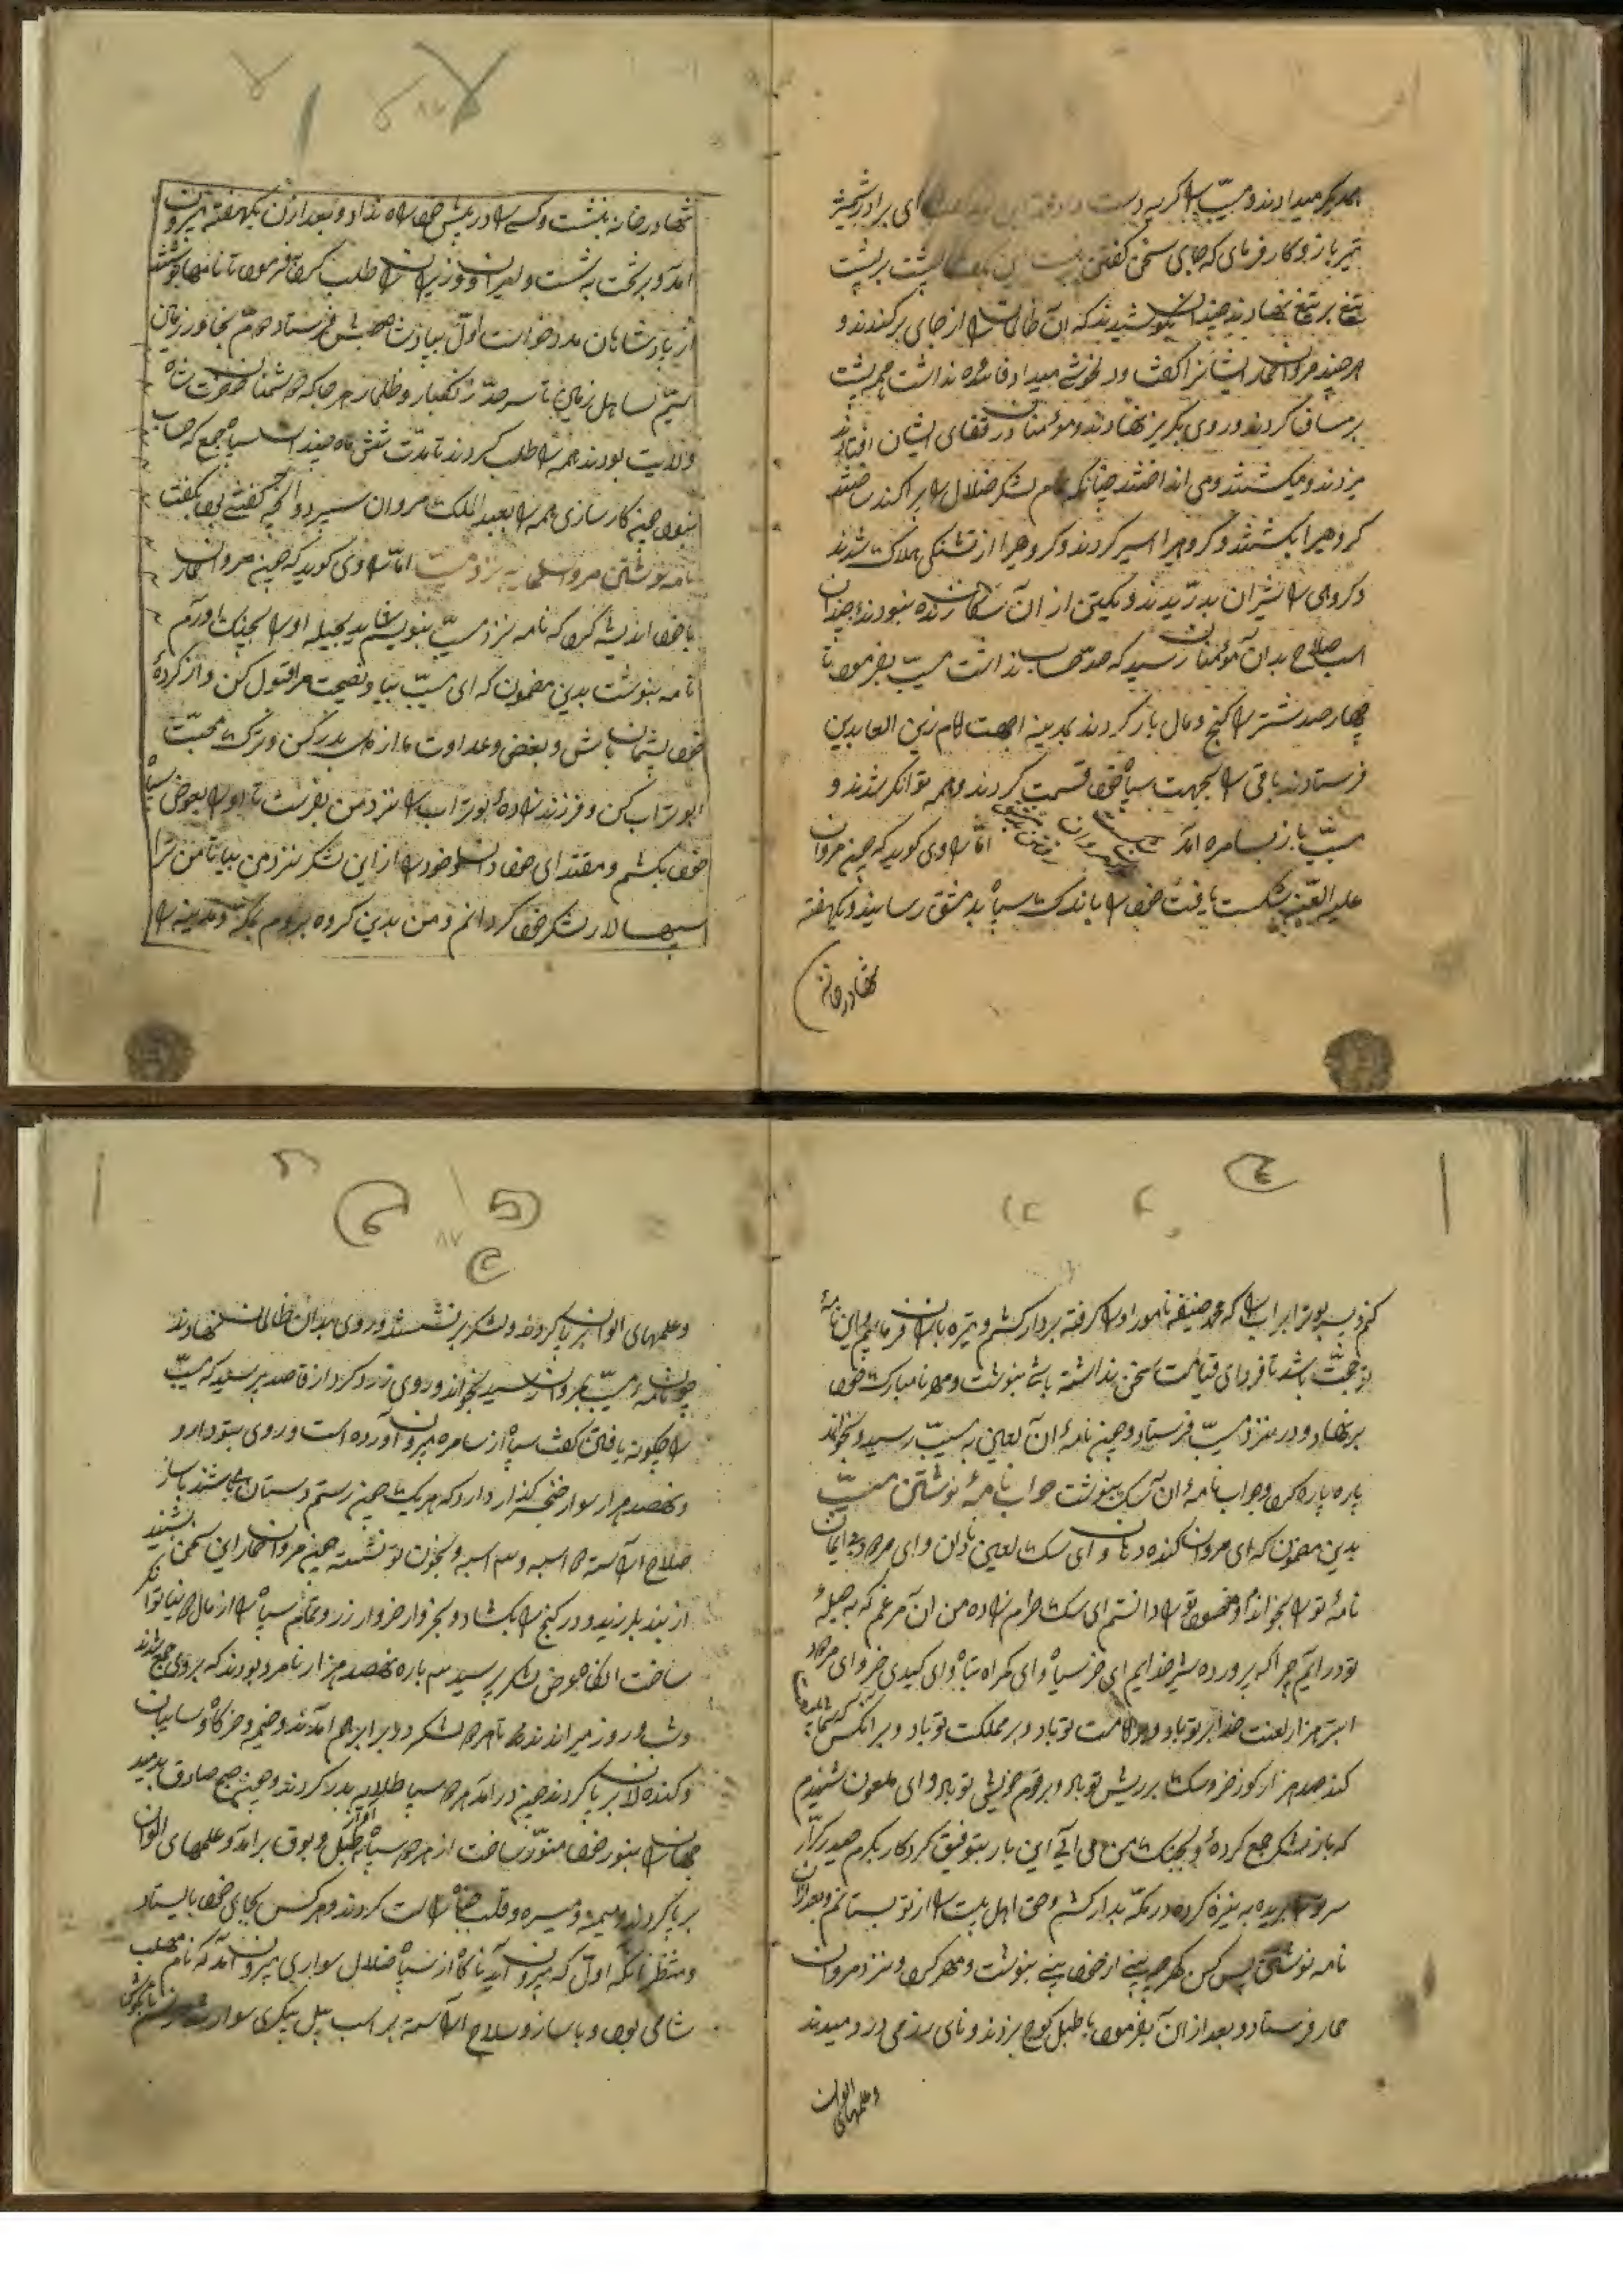 همدیگر میدادند و مسیّب را کریه دست داد ای برادر شمشیر
تیر باز و کار فرمای که جای سخن کفتن نیست این بگفت پشت بر پشت
تیغ بر تیغ نهادند چندان بکوشیدند که آن ظالمان را از جای برکندند و
هر چند مروان حمار ایشانرا کفت و دلخوشی میداد فائده نداشت همه پشت
بر مصاف کردند و روی بکریز نهادند و مؤمنان در قفای ایشان افتادند
میزدند و میکشتند و می انداختند چنانکه تمام لشکر ضلال را پراکنده ساختند
کروهیرا بکشتند و کروهیرا اسیر کردند و کروهیرا از تشنکی هلاک شدند
و کروهی را شیران بدرّیدند و یکتن از آن سکان زنده نبودند و چندان
اسب و سلاح بدان مؤمنان رسید که حدّ حساب نداشت مسیّب بفرمود تا
چهار صد شتر را کنج و مال بار کردند بمدینه بجهت امام زین العابدین
فرستادند باقی را بجهت سپاه خود قسمت کردند و همه توانکر شدند و
مسیّب باز بسامره آمد امّا راوی کوید که چون مروان
علیه اللعنه شکست یافت خود را با اندک سپاه بدمشق رسانید و یکهفته
تنها در خانه
تنها در خانه بنشست و کسی را در پیش خود راه نداد و بعد از آن یکهفته بیرون
آمد و بر تخت بنشست و امیران و وزیران را طلب کرد و بفرمود تا نامها نوشتند
از پادشاهان مدد خواست اوّل بپادشاه حبش فرستاد دوم بخاور زمین
سیّم تا سرحدّ زنکبار و ظلمات هر جا که دشمنان
ولایت بودند همه را طلب کردند تا مدّت شش ماه چندان سپاه جمع که حساب
نبود چون کارسازی همه را بعبد الملک مروان سپرد و آنچه کفتنی بود بکفت
نامه نوشتن مروان نزد مسیّب امّا راوی کوید که چون مروان حمار
با خود اندیشه کرد که نامه نزد مسیّب بنویسم شاید بحیله او را بچنک اورم
نامه بنوشت بدین مضمون که ای مسیّب بیا و نصیحت مرا قبول کن و از کردهٔ
خود پشیمان باش و بغض و عداوت ما از دل بدر کن و ترک محبّت
ابو تراب کن و فرزند زادهٔ بوتراب را نزد من بفرست تا او را بعوض سپاه
خود بکشم و مقتدای خود دان و خود را از این لشکر نزد من بیا تا من ترا
سپهسالار لشکر خود کردانم و من بدین کروه بروم بمکّه و مدینه را
کنم و پسر بوتراب را که محمد حنیفه نام دارد او را کرفته بردار کشم و تیر باران فرمایم و این نامهٔ
تو حجّت باشد تا فردای قیامت سخن نداشته باشی بنوشت و مهر نامبارک خود
بر نهاد و در نزد مسیّب فرستاد و چون نامهٔ آن لعین به مسیّب رسید و بخواند
پاره پاره کرد و جواب نامهٔ آن سک بنوشت جواب نامهٔ نوشتن مسیّب
بدین مضمون که ای مروان کنده دهان و ای سک لعین نادان و ای مردود بی ایمان
نامهٔ تو را بخواندم و مضمون تو را دانستم ای سک حرامزاده من آن مرغم که به حیلهٔ
تو در آیم چرا که پرورده شیر خدایم ای خر سیاه و ای کمراه تباه و ای کیدی خر و ای مردود
ابتر هزار لعنت خدا بر تو باد و بر امامت تو باد و بر مملکت تو باد و بر آنکس که متابعت
کند صد هزار کوز خر و سک بر ریش تو باد و بر قوم و خویش تو باد و ای ملعون شنیدم
که باز لشکر جمع کردهٔ و بجنک من می آئی این بار بتوفیق کردکار بکرم حیدر کرّار
سر تو را بریده به نیزه کرده در مکّه بدار کشم و حق اهل بیت را از تو بستانم و بعد از آن
نامه نوشتی پس کن که هر چه بینی از خود بینی بنوشت و مهر کرد و نزد مروان
حمار فرستاد و بعد از آن بفرمود تا طبل کوچ بزدند و نای رزمی در دمیدند
و علمهای الوان
و علمهای الوان بر پا کردند و لشکر بر نشستند و روی بدان ظالمان نهادند
چون نامهٔ مسیّب بمروان رسید بخواند و روی زرد کرد از قاصد پرسید که مسیّب
را چکونه یافتی کفت سپاه از سامره بیرون آورده است و روی بتو دارد و
و نهصد هزار سوار خنجر کذار دارد که هر یک چون رستم دستان باشند با ساز
صلاح آراسته دو اسبه و سه اسبه و بخون تو تشنه چون مروان حمار این سخن بشنید
از بیم بلرزید و در کنج را بکشاد و بخروار خروار زر و تمام سپاه را از مال دنیا توانکر
ساخت آنکاه عرض لشکر پرسید سه باره نهصد هزار نامرد بودند که بر وی جمع شدند
و شب و روز میراندند تا هر دو لشکر در برابر هم آمدند و خیمه و خرکاه و سایبان
و کنده لان بر پا کردند چون در آمد هر دو سپاه طلایه بدر کردند و چون صبح صادق بدمید
جهان را بنور خود منوّر ساخت از هر دو سپاه آواز طبل و بوق برآمد و علمهای الوان
بر پا کردند و میمنه و میسره و قلب جناح راست کردند و هر کس بجای خود بایستاد
و منتظر آنکه اوّل که بیرون آید ناکاه از سپاه ضلال سواری بیرون آمد که نام مهلب
شامی بود و با ساز و سلاح آراسته بر اسب پیل پیکری سوار